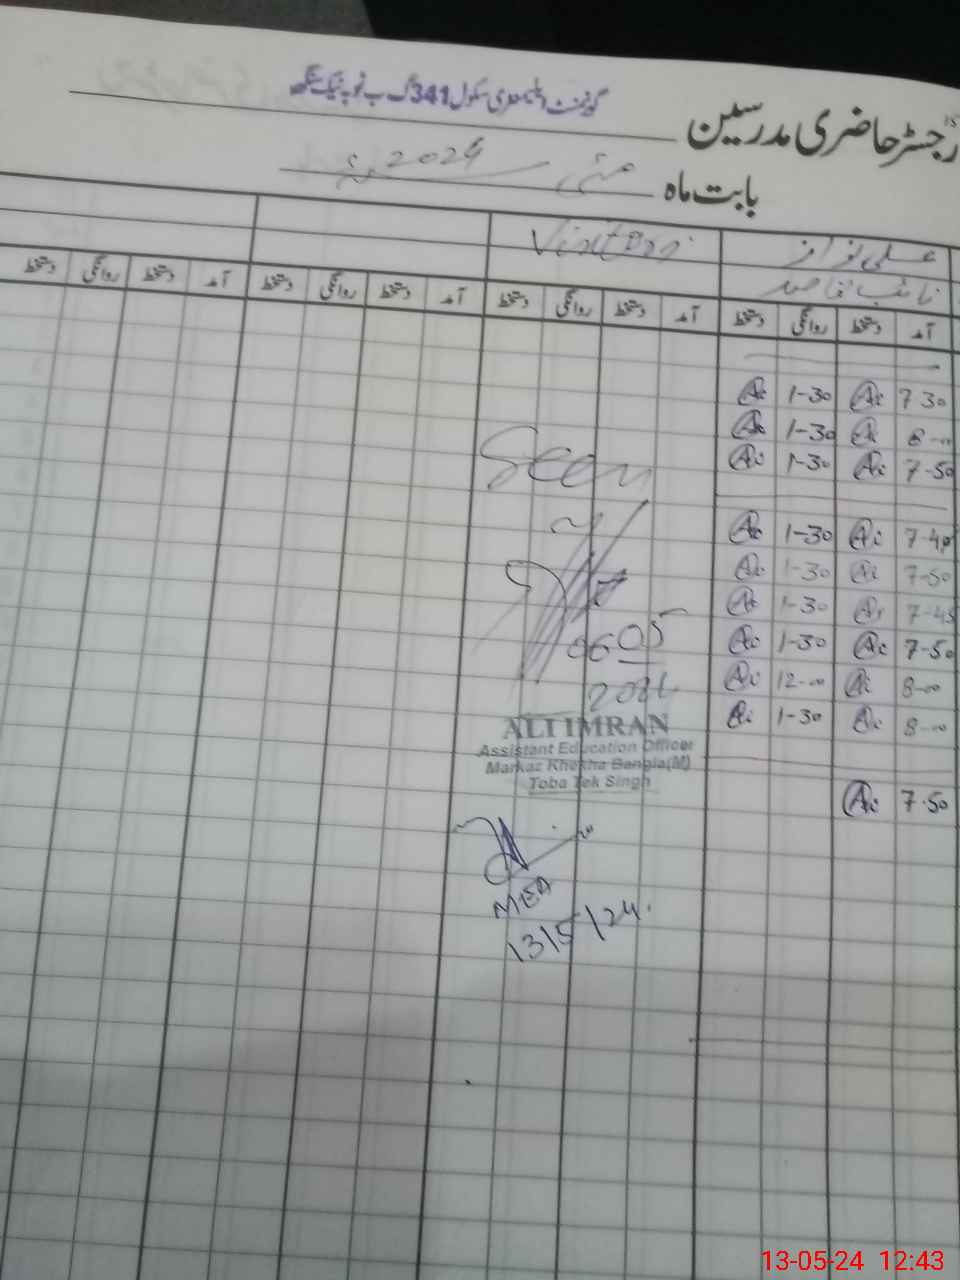 رجسٹر حاضری مدرسین گورنمنٹ ایلیمنٹری سکول 341 گ ب ٹوبہ ٹیک سنگھ
بابت ماہ مئی 2024ء
علی نواز Visitors
نائب قاصد
آمد دستخط روانگی دستخط آمد دستخط روانگی دستخط آمد دستخط روانگی دستخط آمد دستخط روانگی دستخط
7 30 Ai 1-30 Ai
8-00 Ai 1-30 Ai
7-50 Ai 1-30 Ai
Seen
7-40 Ai 1-30 Ai
7-50 Ai 1-30 Ai
7-45 Ai 1-30 Ai
7-50 Ai 1-30 Ai
8-00 Ai 12-00 Ai
8-00 Ai 1-30 Ai
0605
2024
ALI IMRAN
Assistant Education Officer
Markaz Khekha Bangla(M)
Toba Tek Singh
7.50 Ai
MEA
13/5/24.
13-05-24 12:43